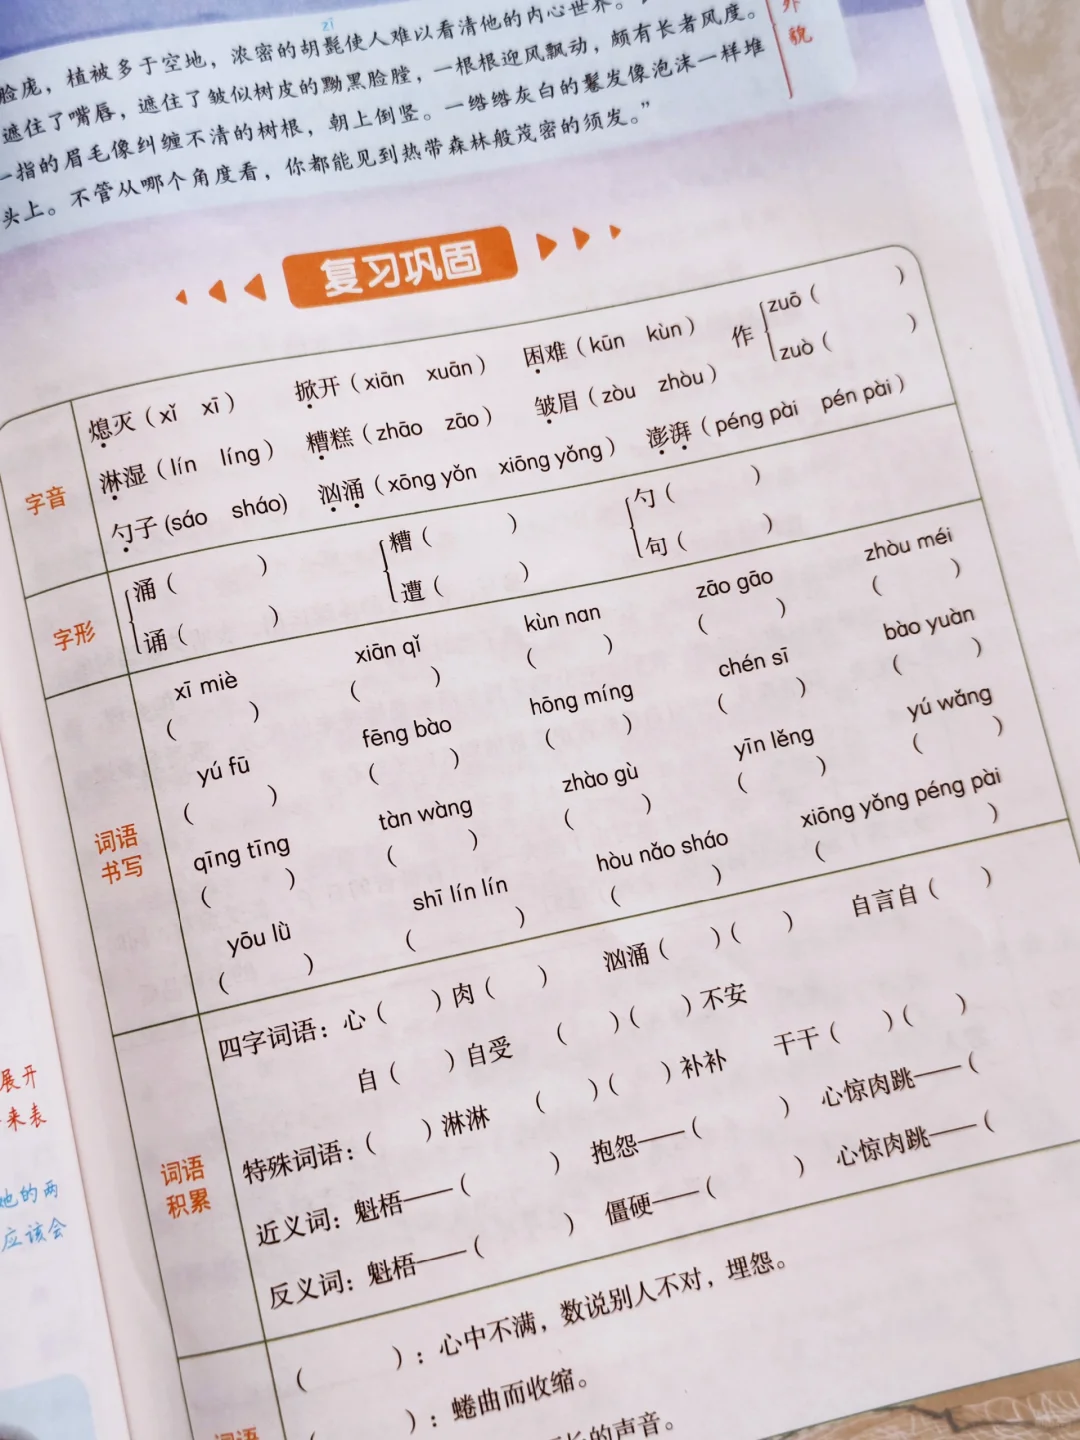 zī
脸庞，植被多于空地，浓密的胡髭使人难以看清他的内心世界。
遮住了嘴唇，遮住了皱似树皮的黝黑脸膛，一根根迎风飘动，颇有长者风度。
一指的眉毛像纠缠不清的树根，朝上倒竖。一绺绺灰白的鬈发像泡沫一样堆
头上。不管从哪个角度看，你都能见到热带森林般茂密的须发。”
外貌
复习巩固
字音
熄灭（xǐ xī） 掀开（xiān xuān） 困难（kūn kùn） 作 zuō（ ） zuò（ ）
淋湿（lín líng） 糟糕（zhāo zāo） 皱眉（zòu zhòu）
勺子(sáo sháo) 汹涌（xōng yǒn xiōng yǒng） 澎湃（péng pài pén pài）
字形
涌（ ） 糟（ ） 勺（ ）
诵（ ） 遭（ ） 句（ ）
词语书写
xī miè xiān qǐ kùn nan zāo gāo zhòu méi
（ ） （ ） （ ） （ ） （ ）
yú fū fēng bào hōng míng chén sī bào yuàn
（ ） （ ） （ ） （ ） （ ）
qīng tīng tàn wàng zhào gù yīn lěng yú wǎng
（ ） （ ） （ ） （ ） （ ）
yōu lǜ shī lín lín hòu nǎo sháo xiōng yǒng péng pài
（ ） （ ） （ ） （ ）
词语积累
四字词语：心（ ）肉（ ） 汹涌（ ）（ ） 自言自（ ）
自（ ）自受 （ ）（ ）不安
特殊词语：（ ）淋淋 （ ）（ ）补补 干干（ ）（ ）
近义词：魁梧——（ ） 抱怨——（ ） 心惊肉跳——（
反义词：魁梧——（ ） 僵硬——（ ） 心惊肉跳——（
词语
（ ）：心中不满，数说别人不对，埋怨。
（ ）：蜷曲而收缩。
长的声音。
展开
来表
她的两
应该会